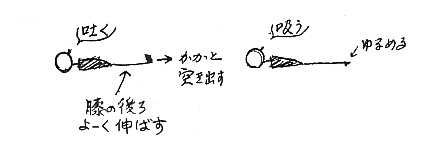 吐く
かかと
突き出す
膝の後ろ
よーく伸ばす
吸う
ゆるめる